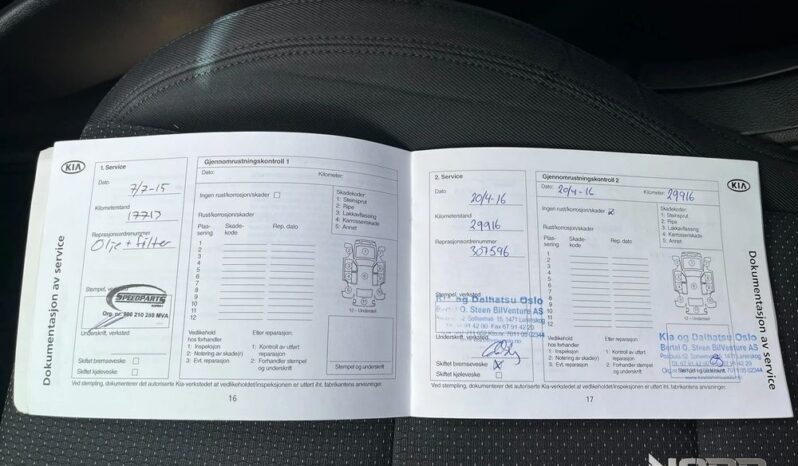 KIA
1. Service
Dato
7/7-15
Kilometerstand
17713
Reprasjonsordrenummer
Olje + filter
Stempel, verksted
SPEEDPARTS
Org. nr. 986 210 298 MVA
Underskrift, verksted
Skiftet bremsevæske
Skiftet kjølevæske
Gjennomrustningskontroll 1
Dato:
Kilometer:
Ingen rust/korrosjon/skader
Rust/korrosjon/skader
Plas-
sering
Skade-
kode
Rep. dato
1
2
3
4
5
6
7
8
9
10
11
12
Skadekoder:
1: Steinsprut
2: Ripe
3: Lakkavflassing
4: Karosseriskade
5: Annet
12 - Understell
Vedlikehold
hos forhandler
1 : Inspeksjon
2 : Notering av skade(r)
3 : Evt. reparasjon
Etter reparasjon:
1 : Kontroll av utført
reparasjon
2 : Forhandler stempel
og underskrift
Stempel og underskrift
Ved stempling, dokumenterer det autoriserte Kia-verkstedet at vedlikeholdet/inspeksjonen er utført iht. fabrikantens anvisninger.
16
Dokumentasjon av service
2. Service
Dato
20/4-16
Kilometerstand
29916
Reprasjonsordrenummer
307596
Stempel, verksted
Kia og Daihatsu Oslo
Bertel O. Steen BilVenture AS
Underskrift, verksted
Skiftet bremsevæske
Skiftet kjølevæske
Gjennomrustningskontroll 2
Dato:
20/4-16
Kilometer:
29916
Ingen rust/korrosjon/skader
Rust/korrosjon/skader
Plas-
sering
Skade-
kode
Rep. dato
1
2
3
4
5
6
7
8
9
10
11
12
Skadekoder:
1: Steinsprut
2: Ripe
3: Lakkavflassing
4: Karosseriskade
5: Annet
12 - Understell
Vedlikehold
hos forhandler
1 : Inspeksjon
2 : Notering av skade(r)
3 : Evt. reparasjon
Etter reparasjon:
1 : Kontroll av utført
reparasjon
2 : Forhandler stempel
og underskrift
Kia og Daihatsu Oslo
Bertel O. Steen BilVenture AS
Stempel og underskrift
Ved stempling, dokumenterer det autoriserte Kia-verkstedet at vedlikeholdet/inspeksjonen er utført iht. fabrikantens anvisninger.
17
KIA
Dokumentasjon av service